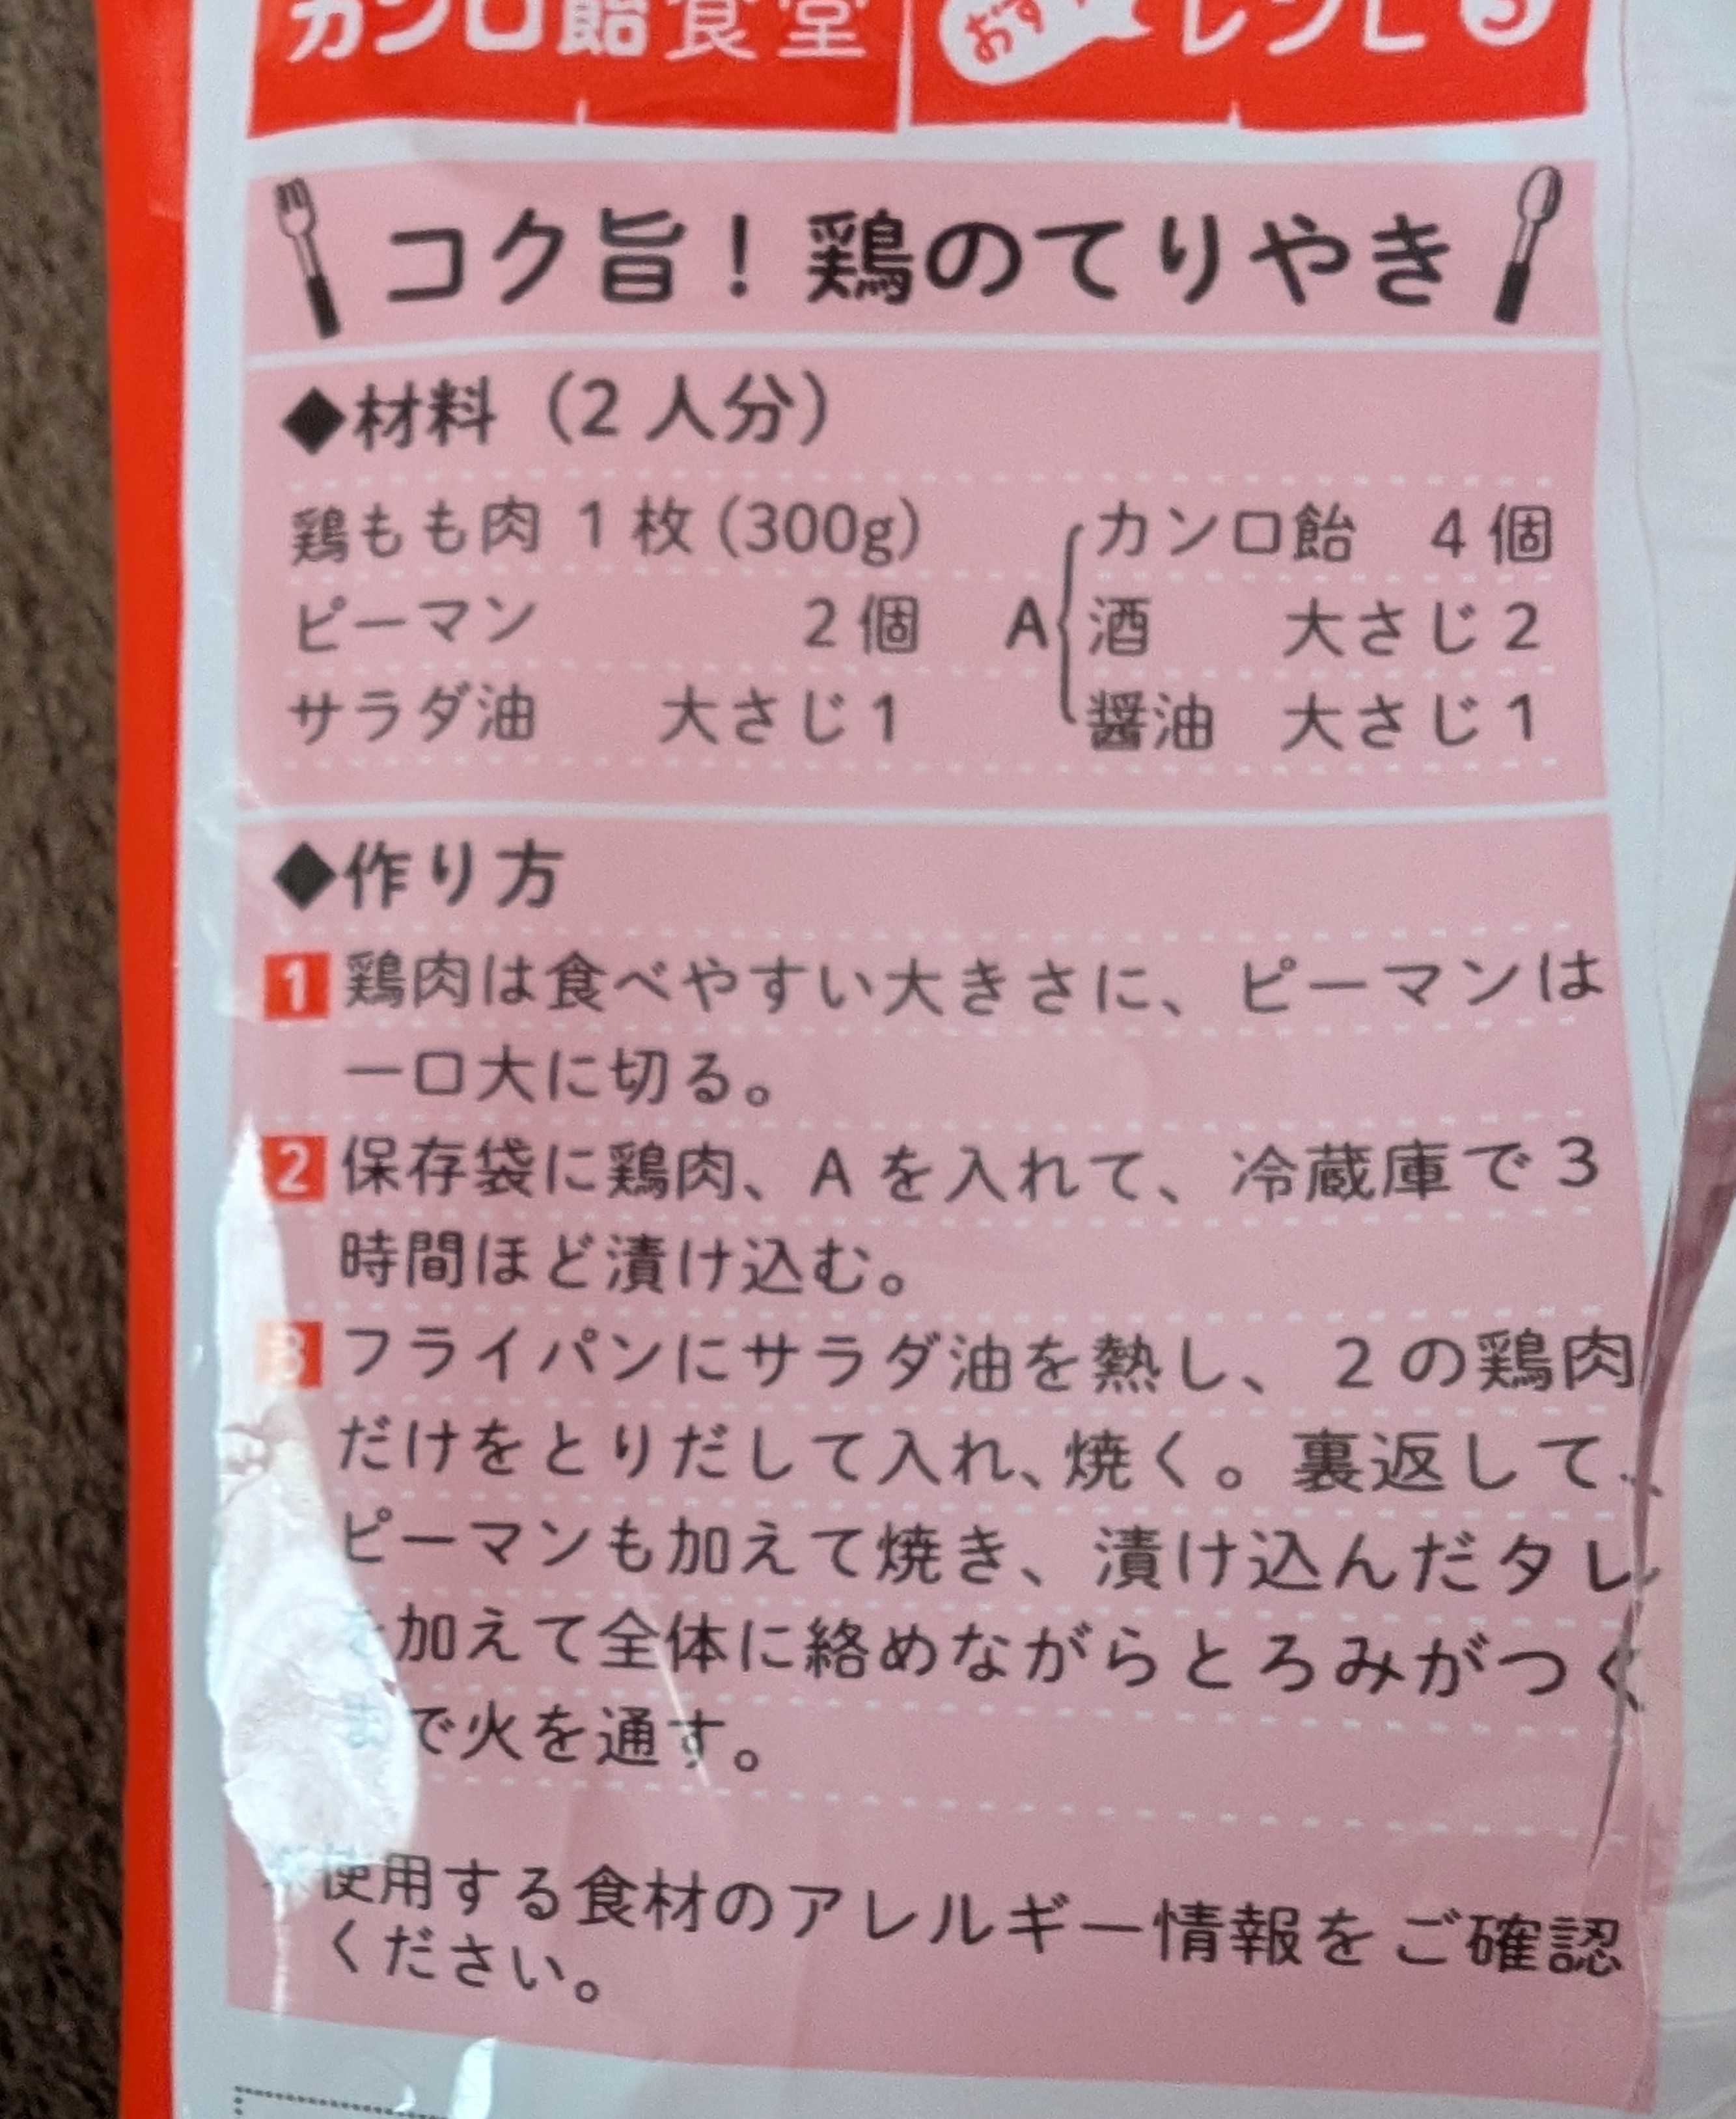 カンロ飴食堂
コク旨！鶏のてりやき
◆材料（2人分）
鶏もも肉 1枚（300g）
ピーマン 2個
サラダ油 大さじ1
A
カンロ飴 4個
酒 大さじ2
醤油 大さじ1
◆作り方
1 鶏肉は食べやすい大きさに、ピーマンは
一口大に切る。
2 保存袋に鶏肉、Aを入れて、冷蔵庫で3
時間ほど漬け込む。
3 フライパンにサラダ油を熱し、2の鶏肉
だけをとりだして入れ、焼く。裏返して、
ピーマンも加えて焼き、漬け込んだタレ
を加えて全体に絡めながらとろみがつく
まで火を通す。
※使用する食材のアレルギー情報をご確認
ください。